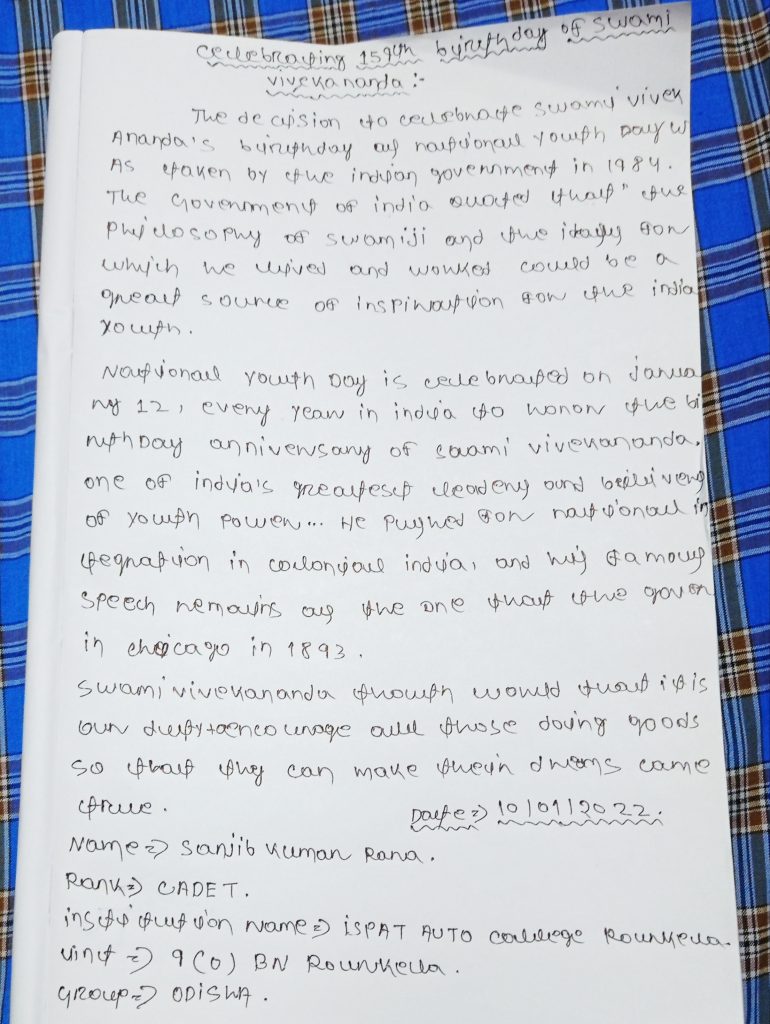 Celebrating 159th birthday of Swami
Vivekananda :-
The decision to celebrate Swami Vivek
Ananda's birthday as national Youth Day w
As taken by the indian government in 1984.
The Government of india quoted that " the
Philosophy of Swamiji and the ideas for
which he lived and worked could be a
great source of inspiration for the india
Youth.
National Youth Day is celebrated on Janua
ry 12, every year in india to honor the bi
rthDay anniversary of Swami vivekananda,
one of india's greatest leaders and believers
of Youth Power... He pushed for national in
tegration in colonial india, and his famous
speech remains as the one that the given
in chicago in 1893.
Swami vivekananda though would that it is
our duty to encourage all those doing goods
so that they can make their dreams came
true.
Date => 10/01/2022.
Name => Sanjib Kumar Rana.
Rank => CADET.
institution Name => ISPAT AUTO College Rourkela.
Unit => 9 (O) BN Rourkella.
Group => ODISHA.